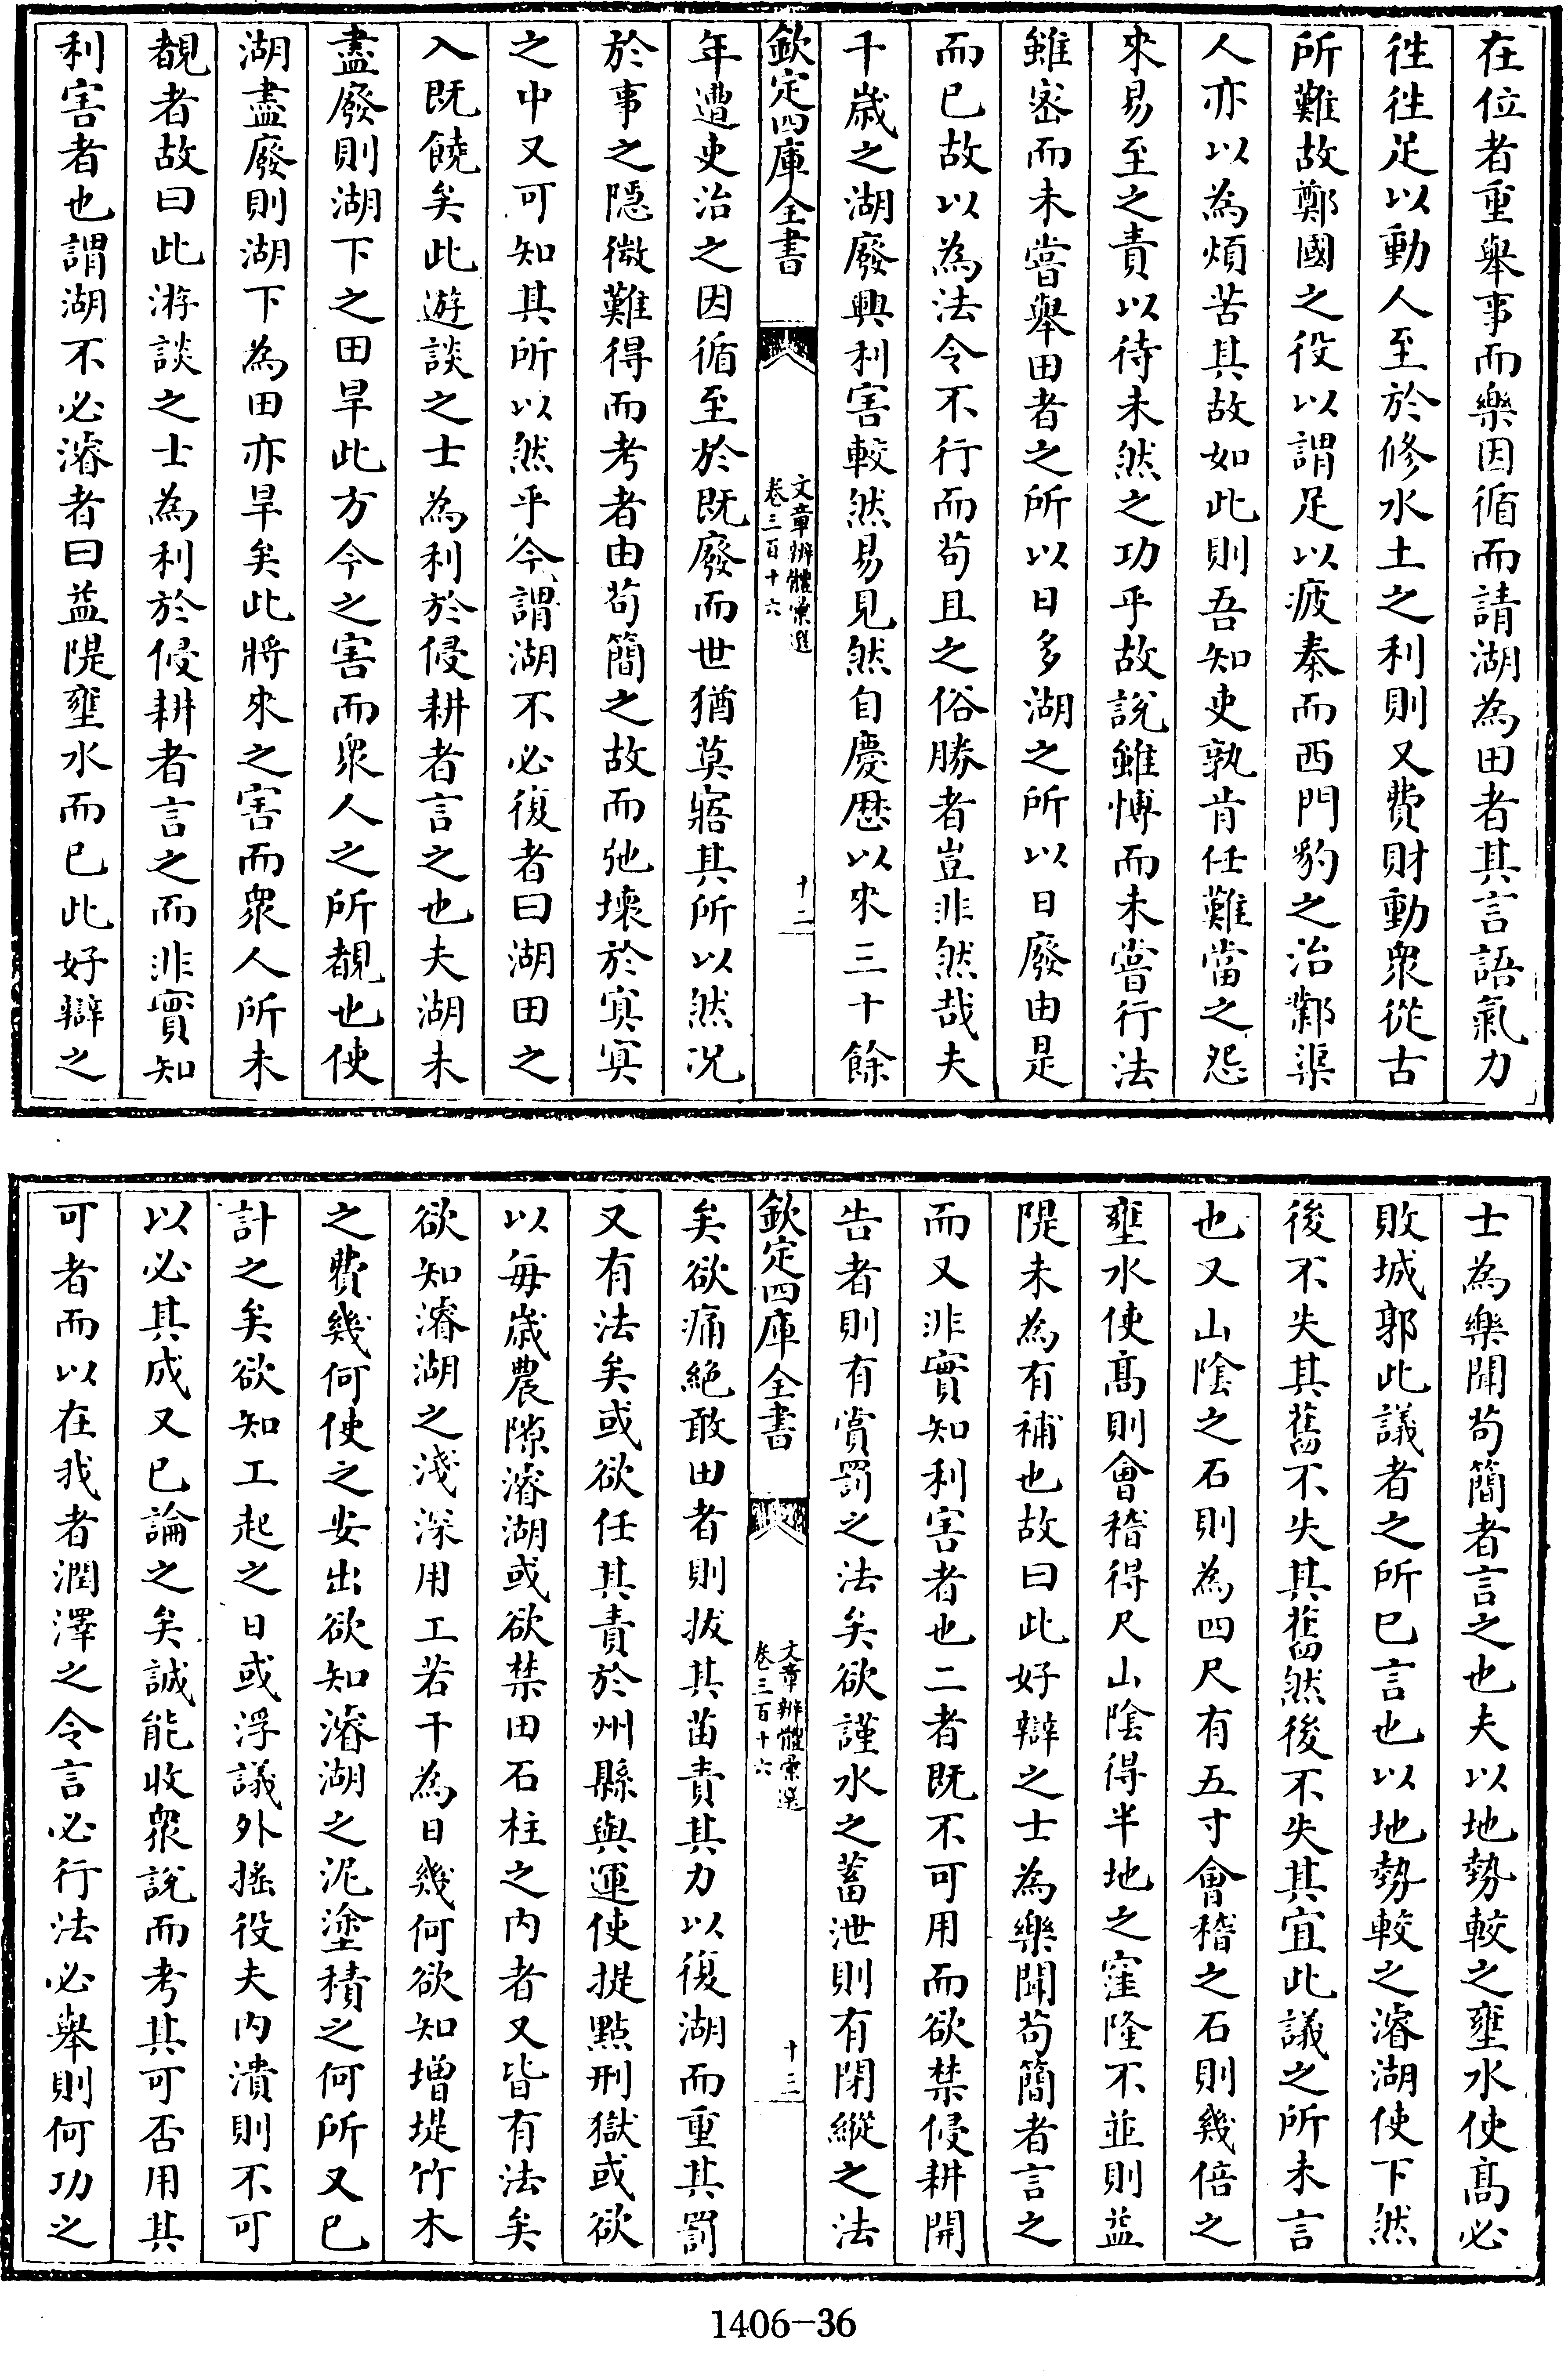 在位者重舉事而樂因循而請湖為田者其言語氣力
徃徃足以動人至於修水土之利則又費財動衆從古
所難故鄭國之役以謂足以疲秦而西門豹之治鄴渠
人亦以為煩苦其故如此則吾知吏孰肯任難當之怨
來易至之責以待未然之功乎故說雖愽而未嘗行法
雖宻而未嘗舉田者之所以日多湖之所以日廢由是
而已故以為法令不行而茍且之俗勝者豈非然哉夫
千歲之湖廢興利害較然易見然自慶厯以來三十餘
欽定四庫全書
文章辨體彙選
卷三百十六
十二
年遭吏治之因循至於既廢而世猶莫寤其所以然况
於事之隱微難得而考者由茍簡之故而弛壞於㝠㝠
之中又可知其所以然乎今謂湖不必復者曰湖田之
入既饒矣此遊談之士為利於侵耕者言之也夫湖未
盡廢則湖下之田旱此方今之害而衆人之所覩也使
湖盡廢則湖下為田亦旱矣此將來之害而衆人所未
覩者故曰此游談之士為利於侵耕者言之而非實知
利害者也謂湖不必濬者曰益隄壅水而已此好辯之
士為樂聞茍簡者言之也夫以地勢較之壅水使髙必
敗城郭此議者之所已言也以地勢較之濬湖使下然
後不失其舊不失其舊然後不失其宜此議之所未言
也又山隂之石則為四尺有五寸㑹稽之石則幾倍之
壅水使髙則㑹稽得尺山隂得半地之窪隆不並則益
隄未為有補也故曰此好辯之士為樂聞茍簡者言之
而又非實知利害者也二者既不可用而欲禁侵耕開
告者則有賞罰之法矣欲謹水之蓄泄則有閉縱之法
欽定四庫全書
文章辨體彙選
卷三百十六
十三
矣欲痛絶敢田者則拔其苗責其力以復湖而重其罰
又有法矣或欲任其責於州縣與運使提點刑獄或欲
以毎歲農隙濬湖或欲禁田石柱之内者又皆有法矣
欲知濬湖之淺深用工若干為日幾何欲知增堤竹木
之費幾何使之安出欲知濬湖之泥塗積之何所又已
計之矣欲知工起之日或浮議外搖役夫内潰則不可
以必其成又已論之矣誠能收衆説而考其可否用其
可者而以在我者潤澤之令言必行法必舉則何功之
1406-36